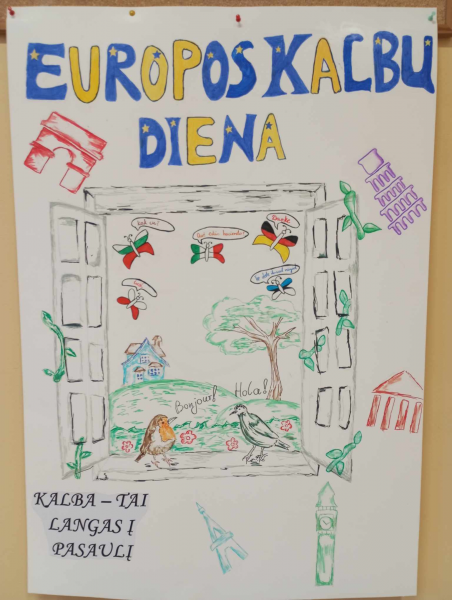 EUROPOS KALBŲ
DIENA
Danke
Bonjour!
Hola!
KALBA – TAI
LANGAS Į
PASAULĮ